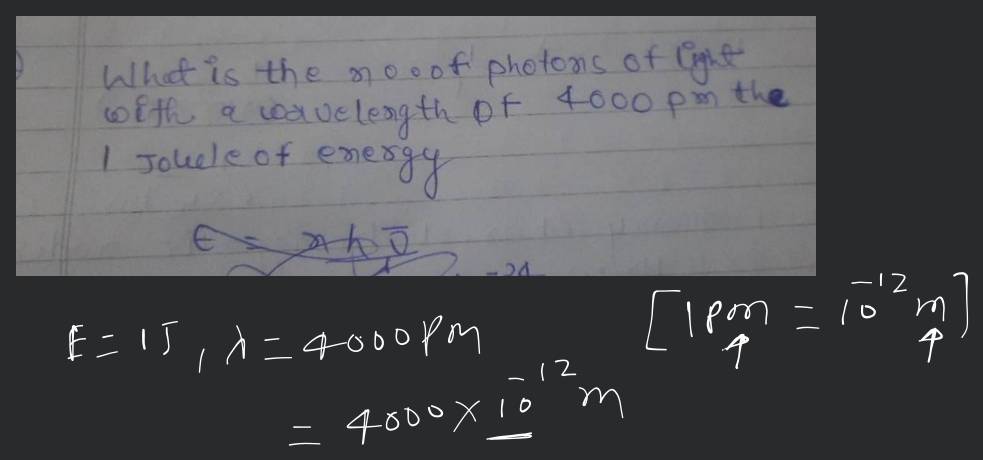 What is the no. of photons of light
with a wavelength of 4000 pm the
1 Jouele of energy
E = nh
-34
E = 1J, λ = 4000 Pm [1 Pm = 10^-12 m]
= 4000 × 10^-12 m